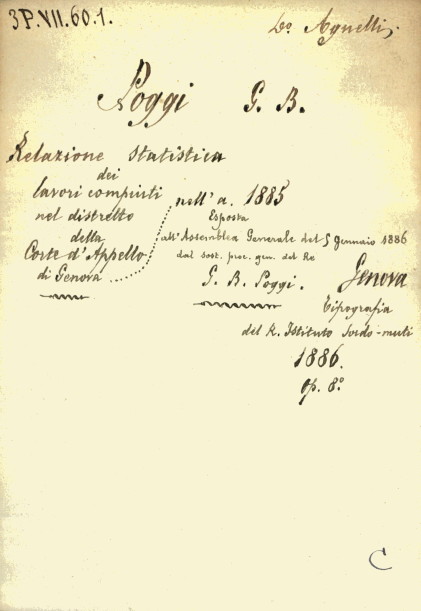 3P.VII.60.1.
Do. Agnelli;
Poggi G. B.
Relazione Statistica
dei
lavori compiuti
nel distretto
della
Corte d'Appello
di Genova
nell'a. 1885
Esposta
all'Assemblea Generale del 5 gennaio 1886
dal sost. proc. gen. del Re
G. B. Poggi.
Genova
Tipografia
del R. Istituto Sordo-muti
1886.
Op. 8º
C